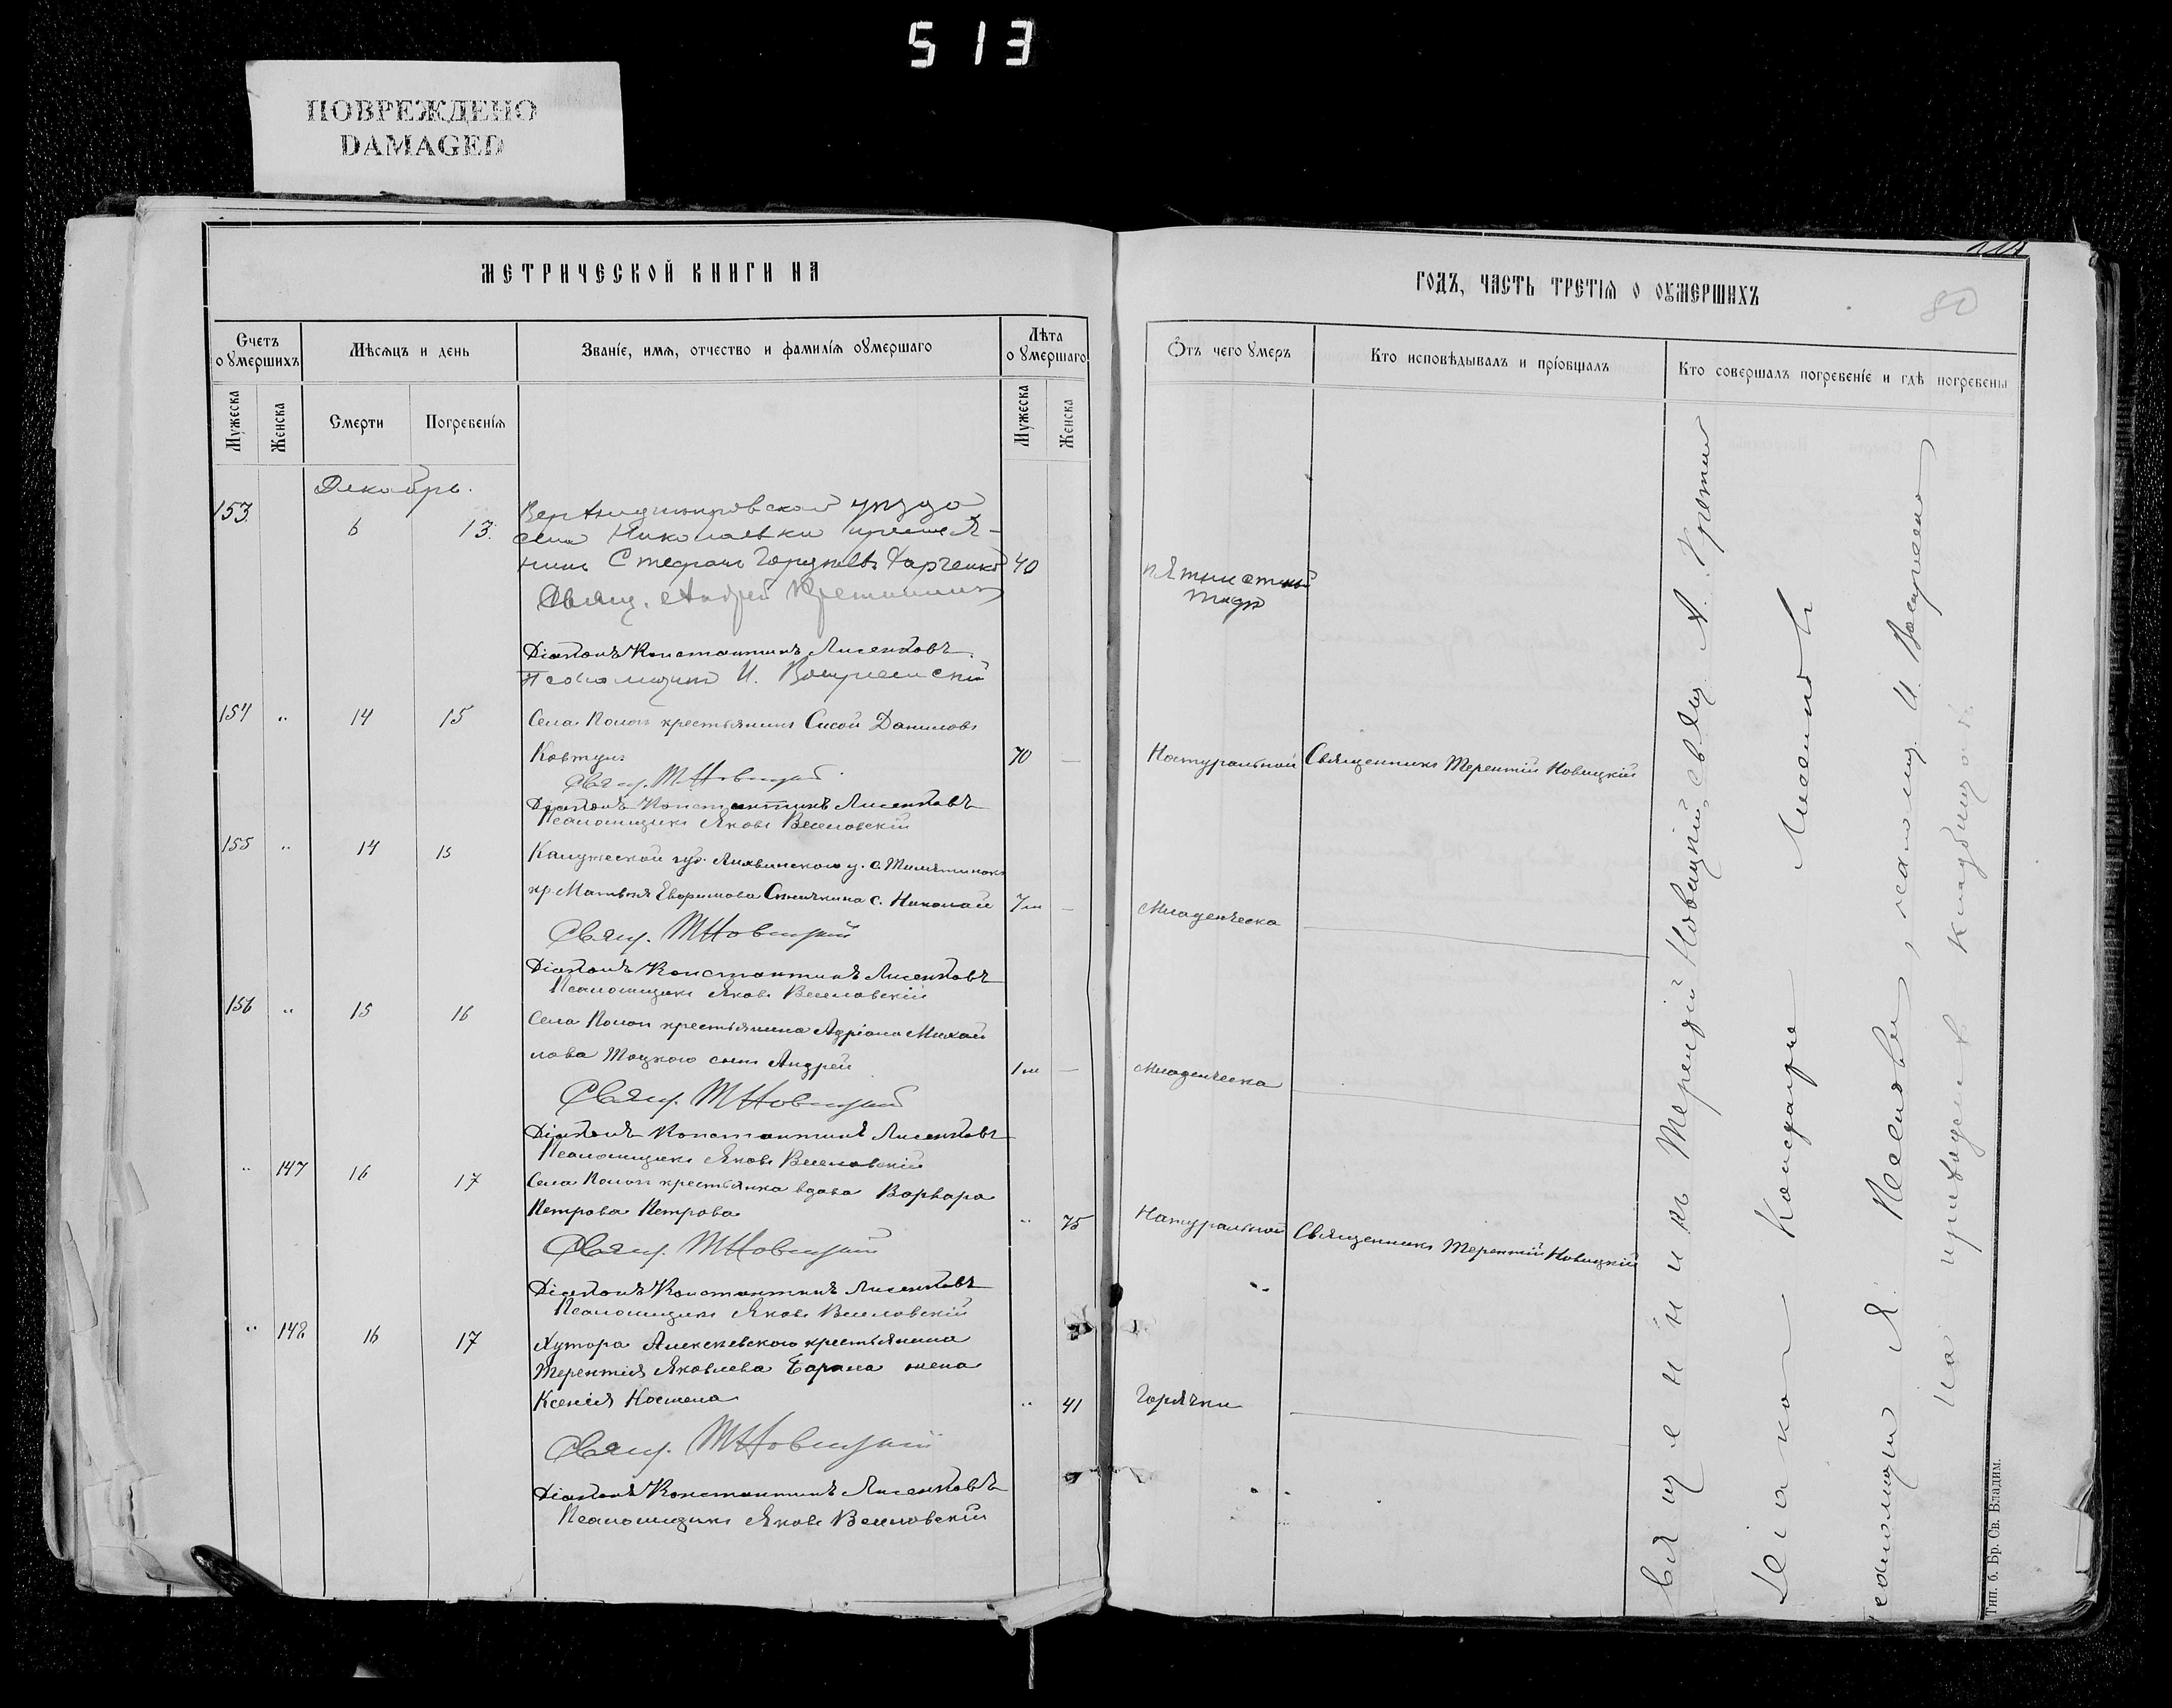 513
ПОВРЕЖДЕНО
DAMAGED
МЕТРИЧЕСКОЙ КНИГИ НА
ГОДЪ, ЧАСТЬ ТРЕТІѦ О ОУМЕРШИХЪ
80
Счетъ оумершихъ
Мѣсѧцъ и день
Званіе, имѧ, отчество и фамиліѧ оумершаго
Лѣта оумершаго
Отъ чего умеръ
Кто исповѣдывалъ и пріобщалъ
Кто совершалъ погребеніе и гдѣ погребены
Мужеска
Женска
Смерти
Погребеніѧ
Мужеска
Женска
Декабрь.
153. 6 13.
села Николаевки
Стефанъ Харченко 40
пятнистый тифъ
Свящ. Андрей
Діаконъ Константинъ Лисенковъ
Псаломщикъ И.
154 " 14 15 Села Попов крестьянинъ Сисой Даниловъ
Ковтунъ 70 — Натуральной Священникъ Терентій Новицкій
Свящ. Т Новицкій
Діаконъ Константинъ Лисенковъ
Псаломщикъ Яковъ Веселовскій
155 " 14 15 Калужской губ. Лихвинского у. с.
кр. Матвѣя Синичкина с. Николай 7 м — Младенческа
Свящ. Т Новицкій
Діаконъ Константинъ Лисенковъ
Псаломщикъ Яковъ Веселовскій
156 " 15 16 Села Попов крестьянина Адріана Михай
лова Тоцкого сынъ Андрей 1 м — Младенческа
Свящ. Т Новицкій
Діаконъ Константинъ Лисенковъ
Псаломщикъ Яковъ Веселовскій
" 147 16 17 Села Попов крестьянка вдова Варвара
Петрова Петрова " 75 Натуральной Священникъ Терентій Новицкій
Свящ. Т Новицкій
Діаконъ Константинъ Лисенковъ
Псаломщикъ Яковъ Веселовскій
" 148 16 17 Хутора Алексѣевского крестьянина
Терентія Яковлева жена
Ксенія " 41 Горячки
Свящ. Т Новицкій
Діаконъ Константинъ Лисенковъ
Псаломщикъ Яковъ Веселовскій
Священникъ Терентій Новицкій, свящ. А.
Діаконъ
Псаломщики Я. псаломщ. И.
на приходскомъ кладбищѣ
Тип. б. Бр. Св. Владим.